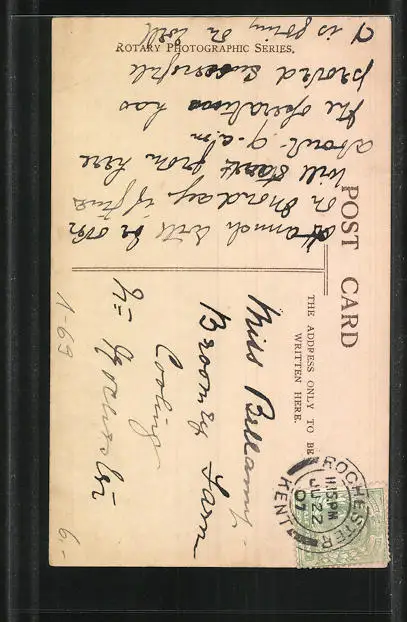 POST CARD
THE ADDRESS ONLY TO BE
WRITTEN HERE.
ROTARY PHOTOGRAPHIC SERIES.
Hannah will be over
on Monday if fine
will start from here
about 9 a.m
the operation has
proved successful
is going on well
Miss Bellamy
Broomey Farm
Cooling
Nr Rochester
ROCHESTER
11.15PM
JU 22
07
KENT
A-69
6,-